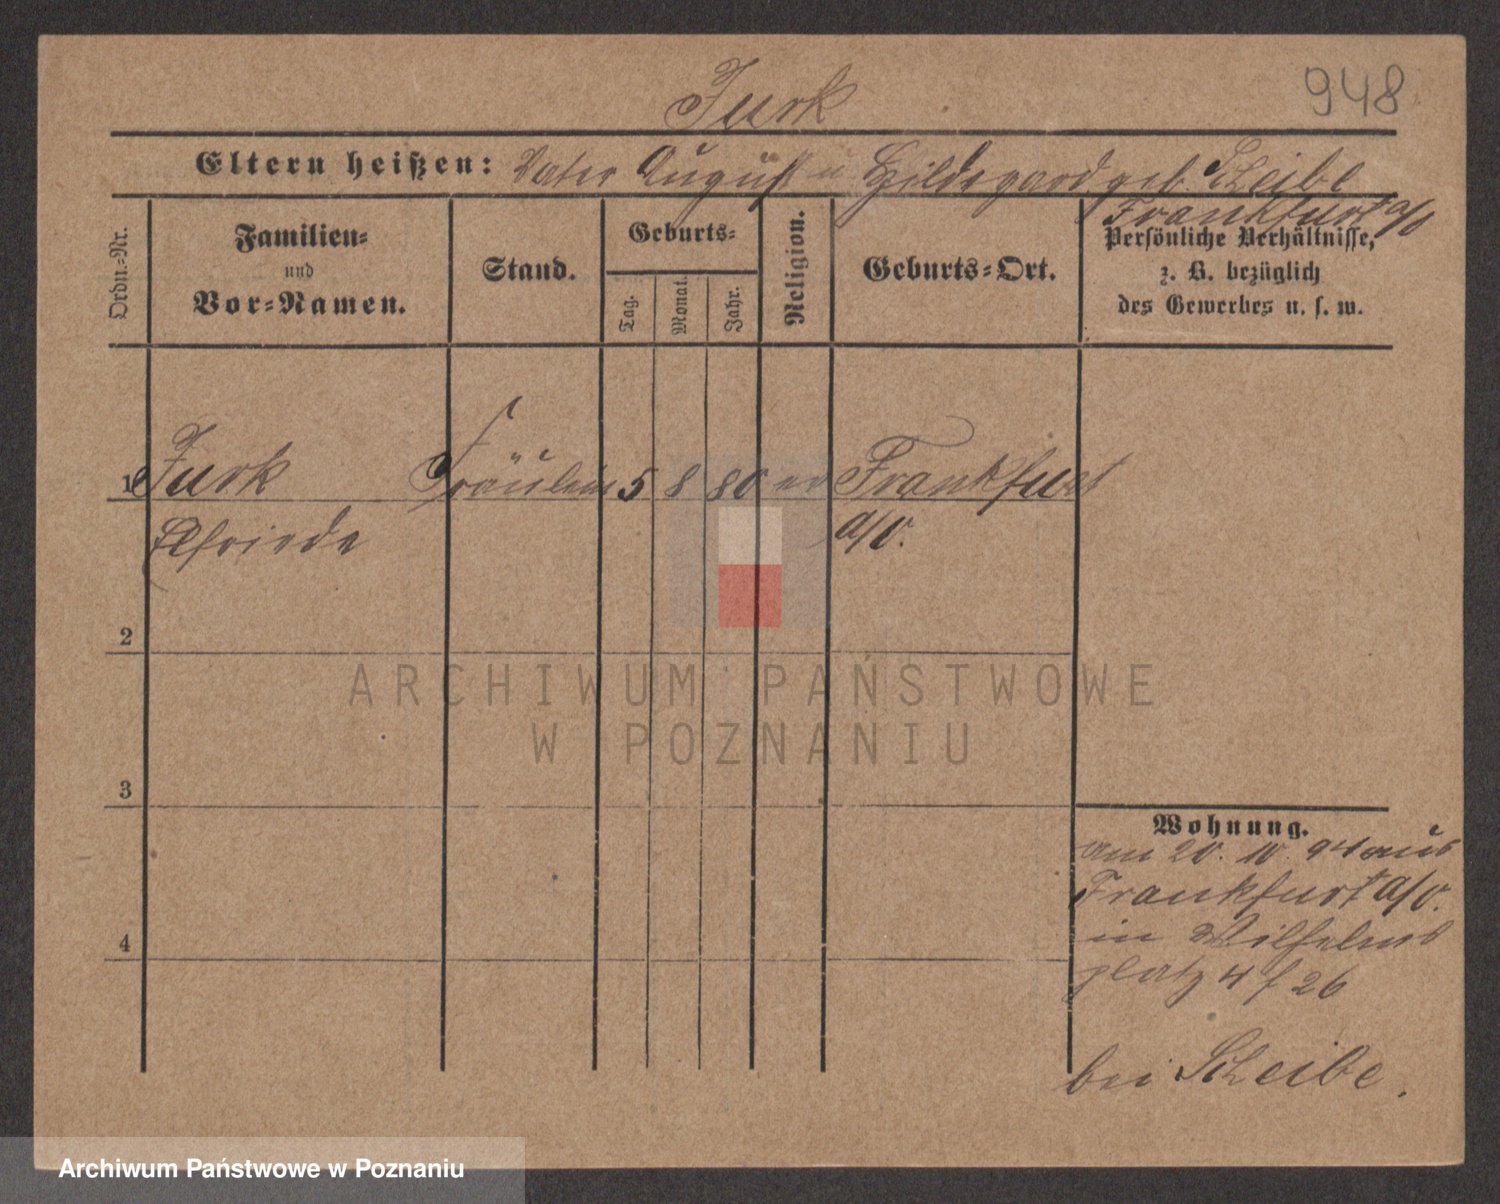 Jurk
948
Eltern heißen: Vater August u Hildegard geb Scheibe
Frankfurt a/O
Ordn.-Nr.
Familien- und Vor-Namen.
Stand.
Geburts-
Tag.
Monat.
Jahr.
Religion.
Geburts-Ort.
Persönliche Verhältnisse,
z. B. bezüglich
des Gewerbes u. s. w.
1 Jurk Fräulein 5 8 80 ev Frankfurt
Elfriede a/O.
2
3
4
Wohnung.
am 20. 10. 94 aus
Frankfurt a/O.
in Wilhelms
platz 4 f 26
bei Scheibe.
ARCHIWUM PAŃSTWOWE
W POZNANIU
Archiwum Państwowe w Poznaniu